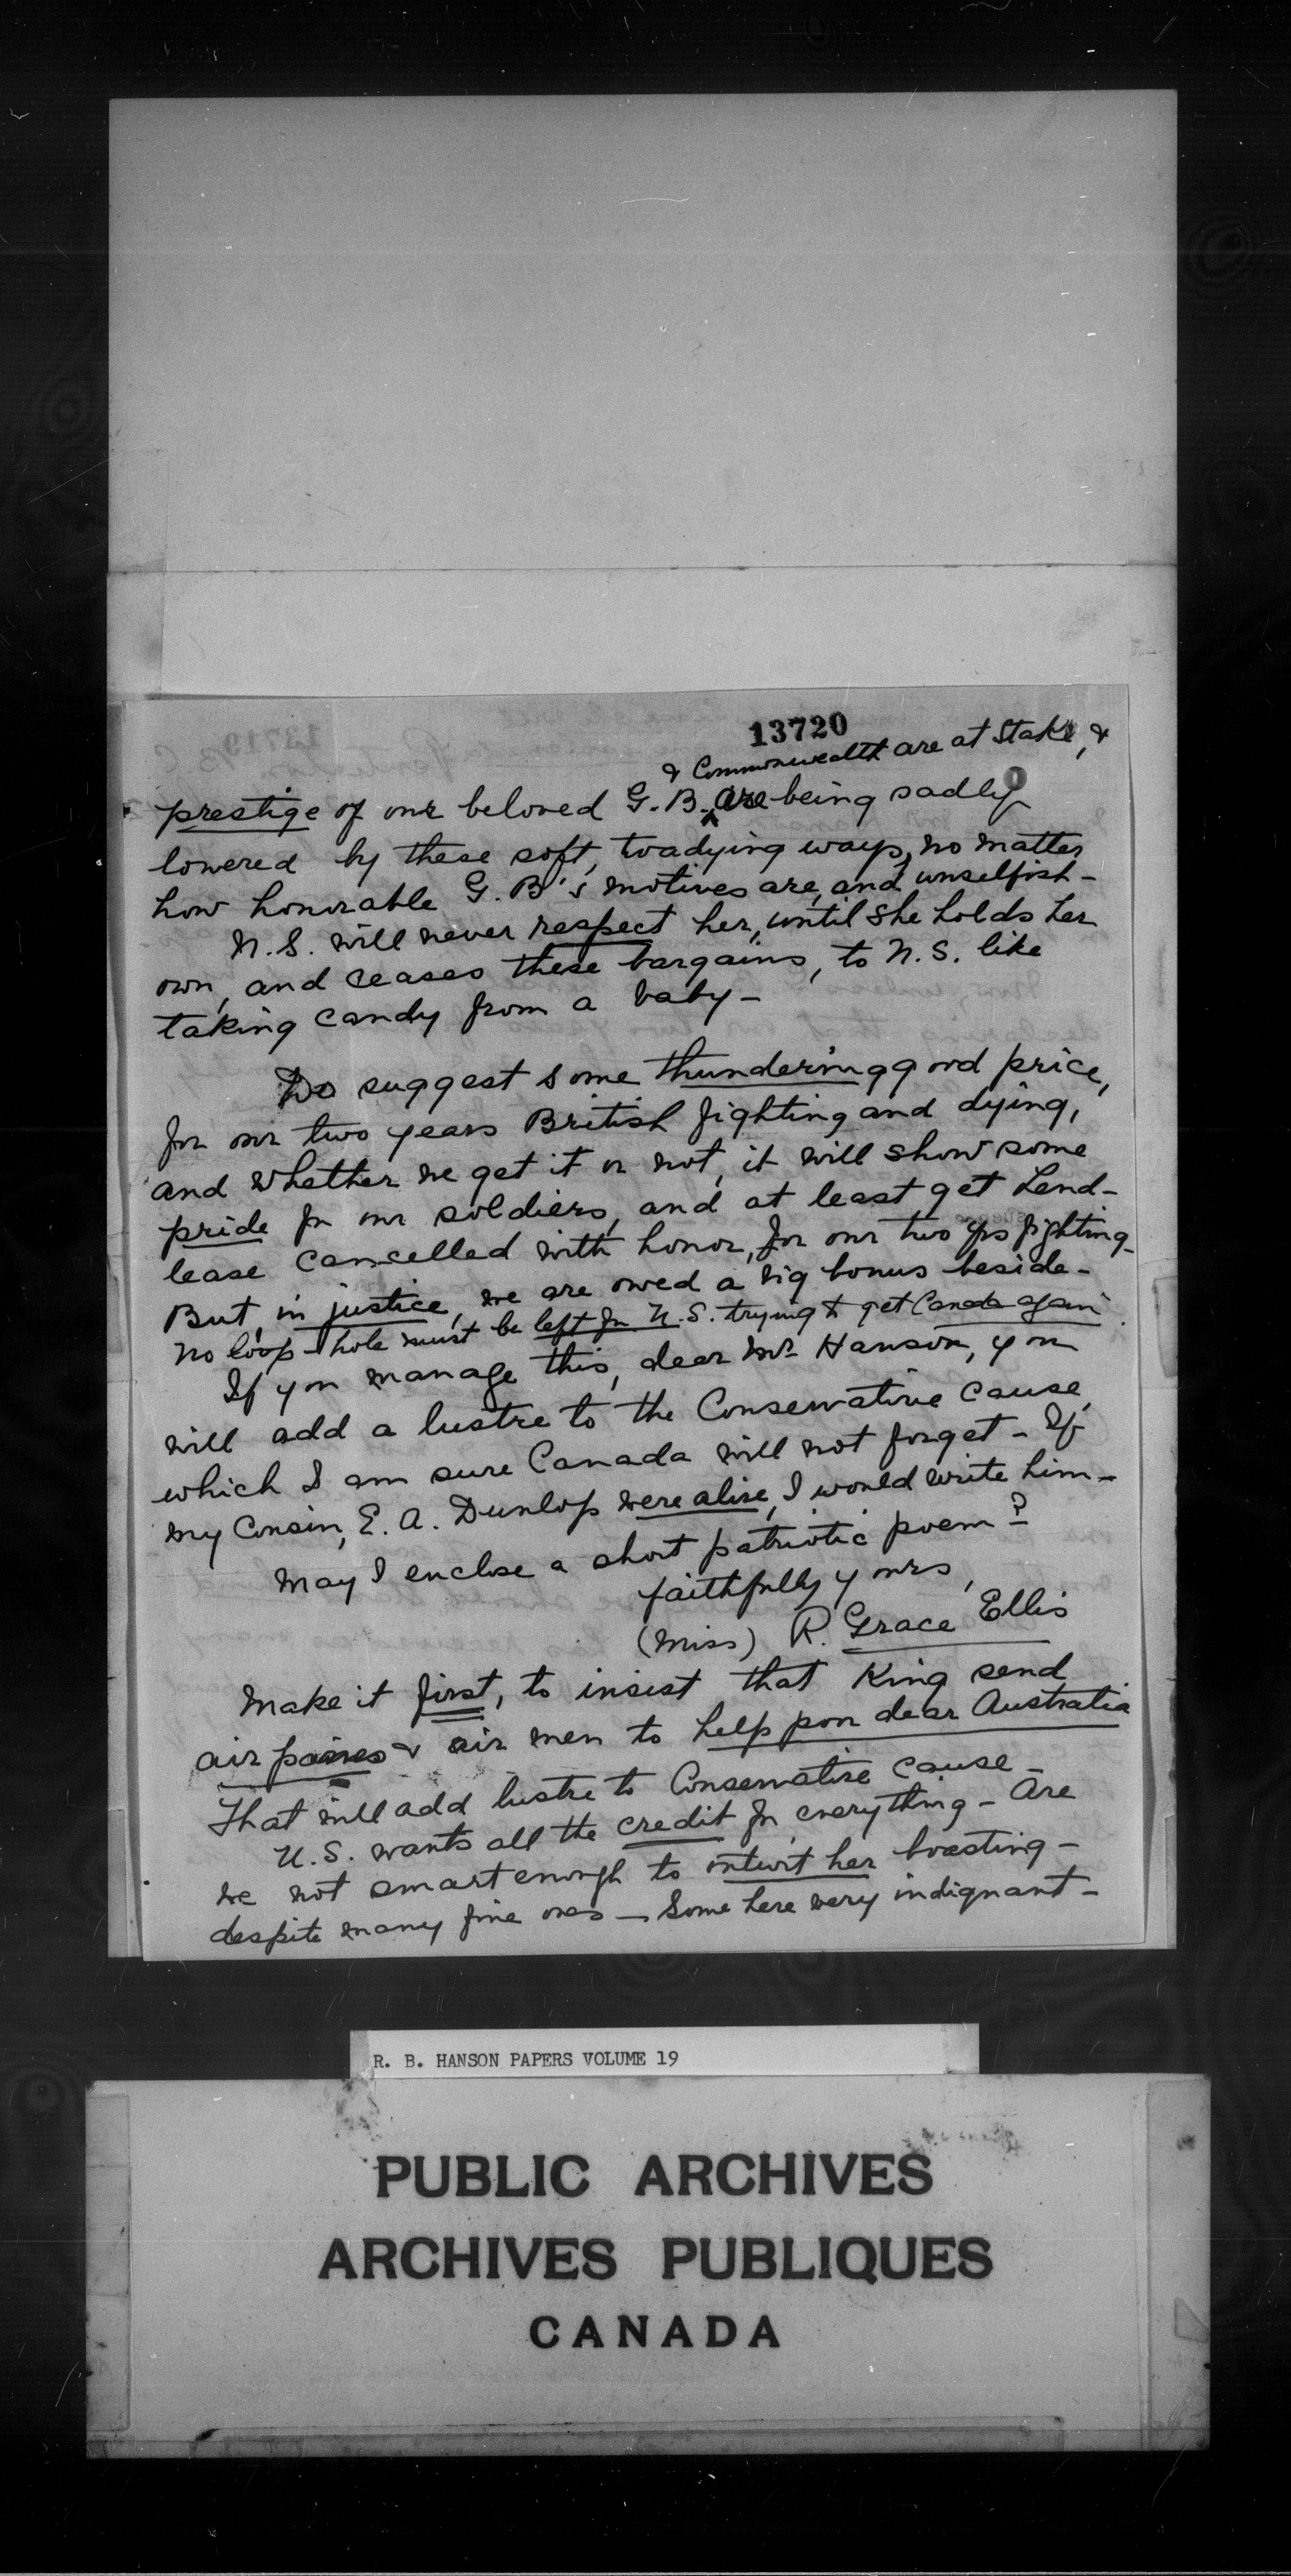 13720
& Commonwealth are at stake, &
prestige of our beloved G. B. are being sadly
lowered by these soft, toadying ways, no matter
how honorable G. B's motives are, and unselfish -
U. S. will never respect her, until she holds her
own, and ceases these bargains, to U. S. like
taking candy from a baby -
Do suggest some thundering good price,
for our two years British fighting and dying,
and whether we get it or not, it will show some
pride for our soldiers, and at least get Lend-
lease cancelled with honor, for our two yrs fighting -
But, in justice, we are owed a big bonus beside -
No loop-hole must be left for U. S. trying to get Canada again
If you manage this, dear Mr Hanson, you
will add a lustre to the Conservative cause,
which I am sure Canada will not forget - If
my Cousin, E. A. Dunlop were alive, I would write him -
May I enclose a short patriotic poem?
faithfully yours,
(Miss) R. Grace Ellis
Make it first, to insist that King send
air & air men to help poor dear Australia
That will add lustre to Conservative cause -
U. S. wants all the credit for everything - Are
we not smart enough to outwit her boasting -
despite many fine ones - Some here very indignant -
R. B. HANSON PAPERS VOLUME 19
PUBLIC ARCHIVES
ARCHIVES PUBLIQUES
CANADA